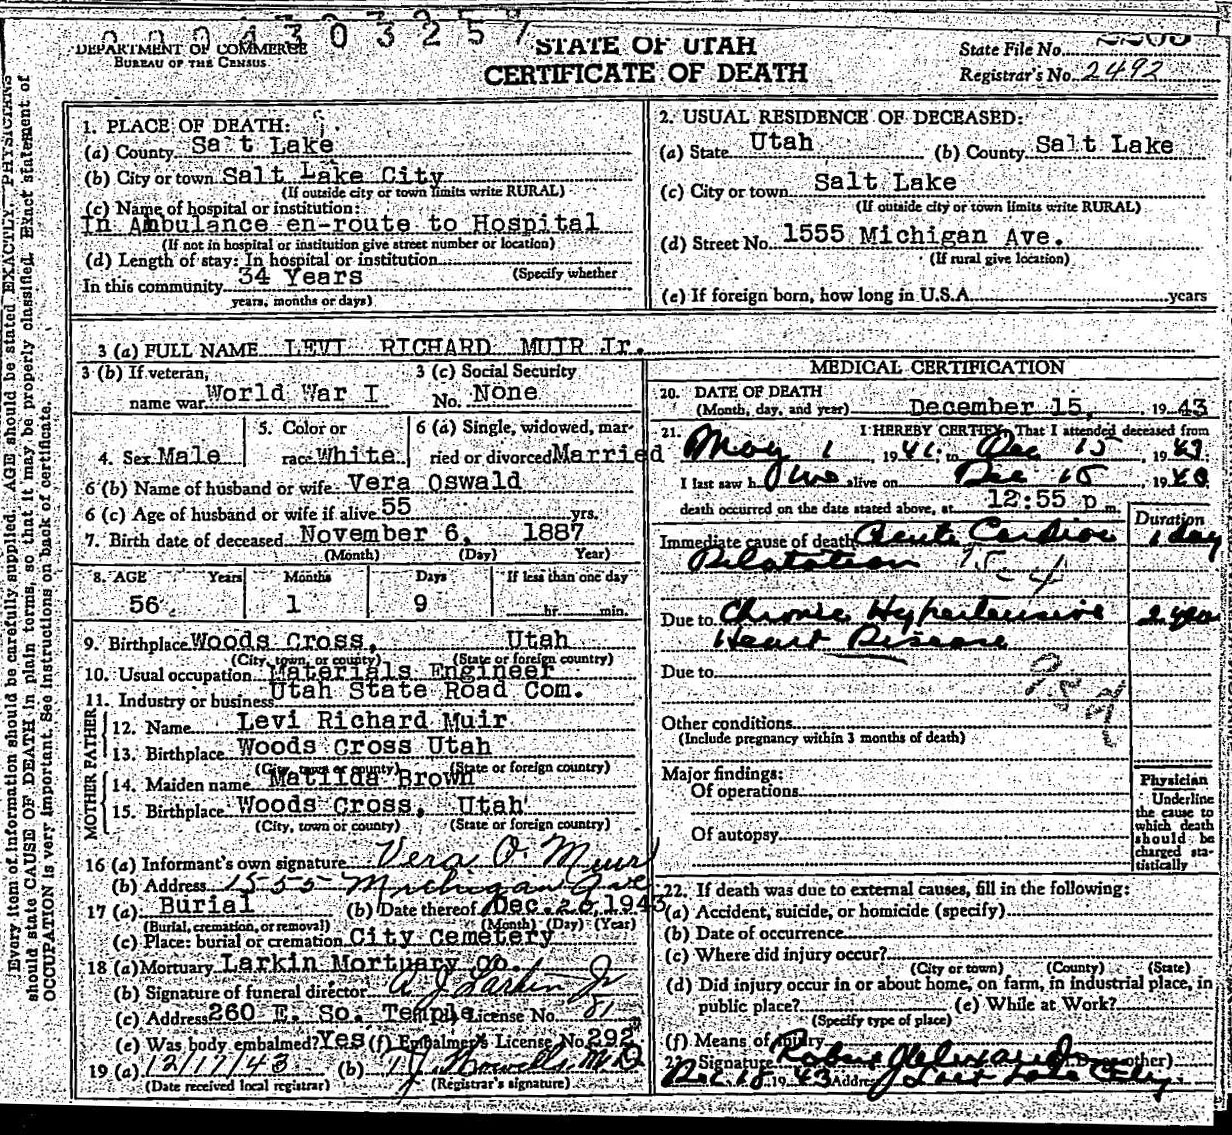 000430325
DEPARTMENT OF COMMERCE
BUREAU OF THE CENSUS
STATE OF UTAH
CERTIFICATE OF DEATH
State File No.
Registrar's No. 2492
Every item of information should be carefully supplied. AGE should be stated EXACTLY. PHYSICIANS
should state CAUSE OF DEATH in plain terms, so that it may be properly classified. Exact statement of
OCCUPATION is very important. See instructions on back of certificate.
1. PLACE OF DEATH:
(a) County Salt Lake
(b) City or town Salt Lake City
(If outside city or town limits write RURAL)
(c) Name of hospital or institution:
In Ambulance en-route to Hospital
(If not in hospital or institution give street number or location)
(d) Length of stay: In hospital or institution
(Specify whether
In this community 34 Years
years, months or days)
2. USUAL RESIDENCE OF DECEASED:
(a) State Utah (b) County Salt Lake
(c) City or town Salt Lake
(If outside city or town limits write RURAL)
(d) Street No. 1555 Michigan Ave.
(If rural give location)
(e) If foreign born, how long in U.S.A. years
3 (a) FULL NAME LEVI RICHARD MUIR Jr.
3 (b) If veteran, name war World War I
3 (c) Social Security No. None
4. Sex Male
5. Color or race White
6 (a) Single, widowed, married or divorced Married
6 (b) Name of husband or wife Vera Oswald
6 (c) Age of husband or wife if alive 55 yrs.
7. Birth date of deceased November 6, 1887
(Month) (Day) Year)
8. AGE Years Months Days If less than one day
56 1 9 hr. min.
9. Birthplace Woods Cross, Utah
(City, town, or county) (State or foreign country)
10. Usual occupation Materials Engineer
11. Industry or business Utah State Road Com.
FATHER
12. Name Levi Richard Muir
13. Birthplace Woods Cross Utah
(City, town or county) (State or foreign country)
MOTHER
14. Maiden name Matilda Brown
15. Birthplace Woods Cross, Utah
(City, town or county) (State or foreign country)
16 (a) Informant's own signature Vera O. Muir
(b) Address 1555 Michigan Ave
17 (a) Burial (b) Date thereof Dec. 20, 1943
(Burial, cremation, or removal) (Month) (Day) (Year)
(c) Place: burial or cremation City Cemetery
18 (a) Mortuary Larkin Mortuary Co.
(b) Signature of funeral director A J Larkin Jr
(c) Address 260 E. So. Temple License No. 81
(e) Was body embalmed? Yes (f) Embalmer's License No. 292
19 (a) 12/17/43 (b) M.D.
(Date received local registrar) (Registrar's signature)
MEDICAL CERTIFICATION
20. DATE OF DEATH
(Month, day, and year) December 15, 1943
21. I HEREBY CERTIFY, That I attended deceased from
May 1 1941, to Dec 15 1943
I last saw h alive on Dec 15 19
death occurred on the date stated above, at 12:55 p m.
Duration
Immediate cause of death Acute Cardiac 1 day
Dilatation 95-4
Due to Chronic Hypertensive 2 yrs
Heart Disease
Due to
Other conditions
(Include pregnancy within 3 months of death)
Major findings:
Of operations
Of autopsy
Physician
Underline
the cause to
which death
should be
charged statistically
22. If death was due to external causes, fill in the following:
(a) Accident, suicide, or homicide (specify)
(b) Date of occurrence
(c) Where did injury occur?
(City or town) (County) (State)
(d) Did injury occur in or about home, on farm, in industrial place, in
public place? (e) While at Work?
(Specify type of place)
(f) Means of injury
23. Signature Robert Alexander (Dr. or other)
Dec. 18, 1943 Address Salt Lake City